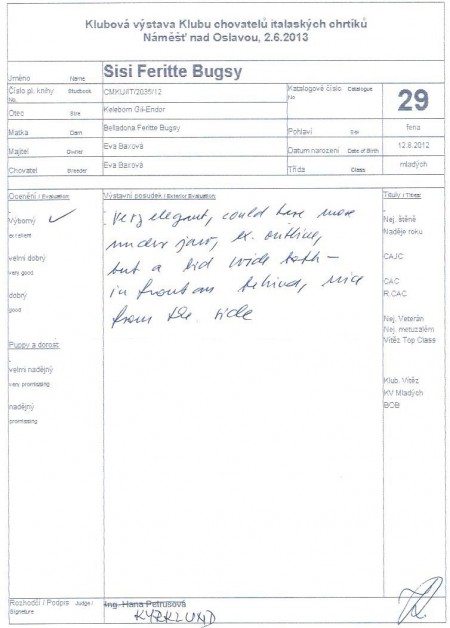 Klubová výstava Klubu chovatelů italaských chrtíků
Náměšť nad Oslavou, 2.6.2013
Jméno Name Sisi Feritte Bugsy
Číslo pl. knihy Studbook No. CMKU/IT/2035/12
Katalogové číslo Catalogue No. 29
Otec Sire Keleborn Gil-Endor
Matka Dam Belladona Feritte Bugsy
Pohlaví Sex fena
Majitel Owner Eva Baxová
Datum narození Date of Birth 12.8.2012
Chovatel Breeder Eva Baxová
Třída Class mladých
Ocenění / Evaluation:
Výborný
excellent
velmi dobrý
very good
dobrý
good
Puppy a dorost:
velmi nadějný
very promissing
nadějný
promissing
Výstavní posudek / Exterior Evaluation:
Very elegant, could have more
under jaw, ex. outline,
but a bid wide both –
in front and behind, nice
from the side
Tituly / Titles:
Nej. štěně
Naděje roku
CAJC
CAC
R.CAC
Nej. Veterán
Nej. metuzalém
Vítěz Top Class
Klub. Vítěz
KV Mladých
BOB
Rozhodčí / Podpis Judge / Signature
Ing. Hana Petrusová
KYRKLUND